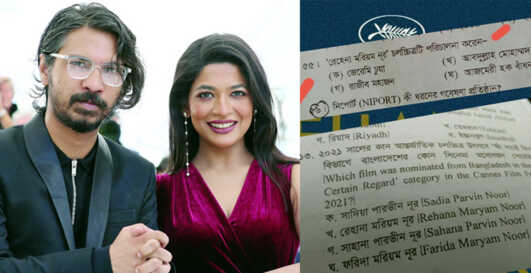 ৫৫। 'রেহেনা মরিয়ম নূর' চলচ্চিত্রটি পরিচালনা করেন-
(ক) জেরেমি চুয়া (খ) আবদুল্লাহ মোহাম্মদ
(গ) রাজীব মহাজন (ঘ) আজমেরী হক বাঁধন
নিপোর্ট (NIPORT) কী ধরনের গবেষণা প্রতিষ্ঠান?
গ. রিয়াদ (Riyadh)
২০২১ সালের কান আন্তর্জাতিক চলচ্চিত্র উৎসবে
বিভাগে বাংলাদেশের কোন সিনেমা
[Which film was nominated from Bangladesh in
Certain Regard' category in the Cannes Film
2021?]
ক. সাদিয়া পারভীন নূর [Sadia Parvin Noor]
খ. রেহানা মরিয়ম নূর [Rehana Maryam Noor]
গ. সাহানা পারভীন নূর [Sahana Parvin Noor]
ঘ. ফরিদা মরিয়ম নূর [Farida Maryam Noor]